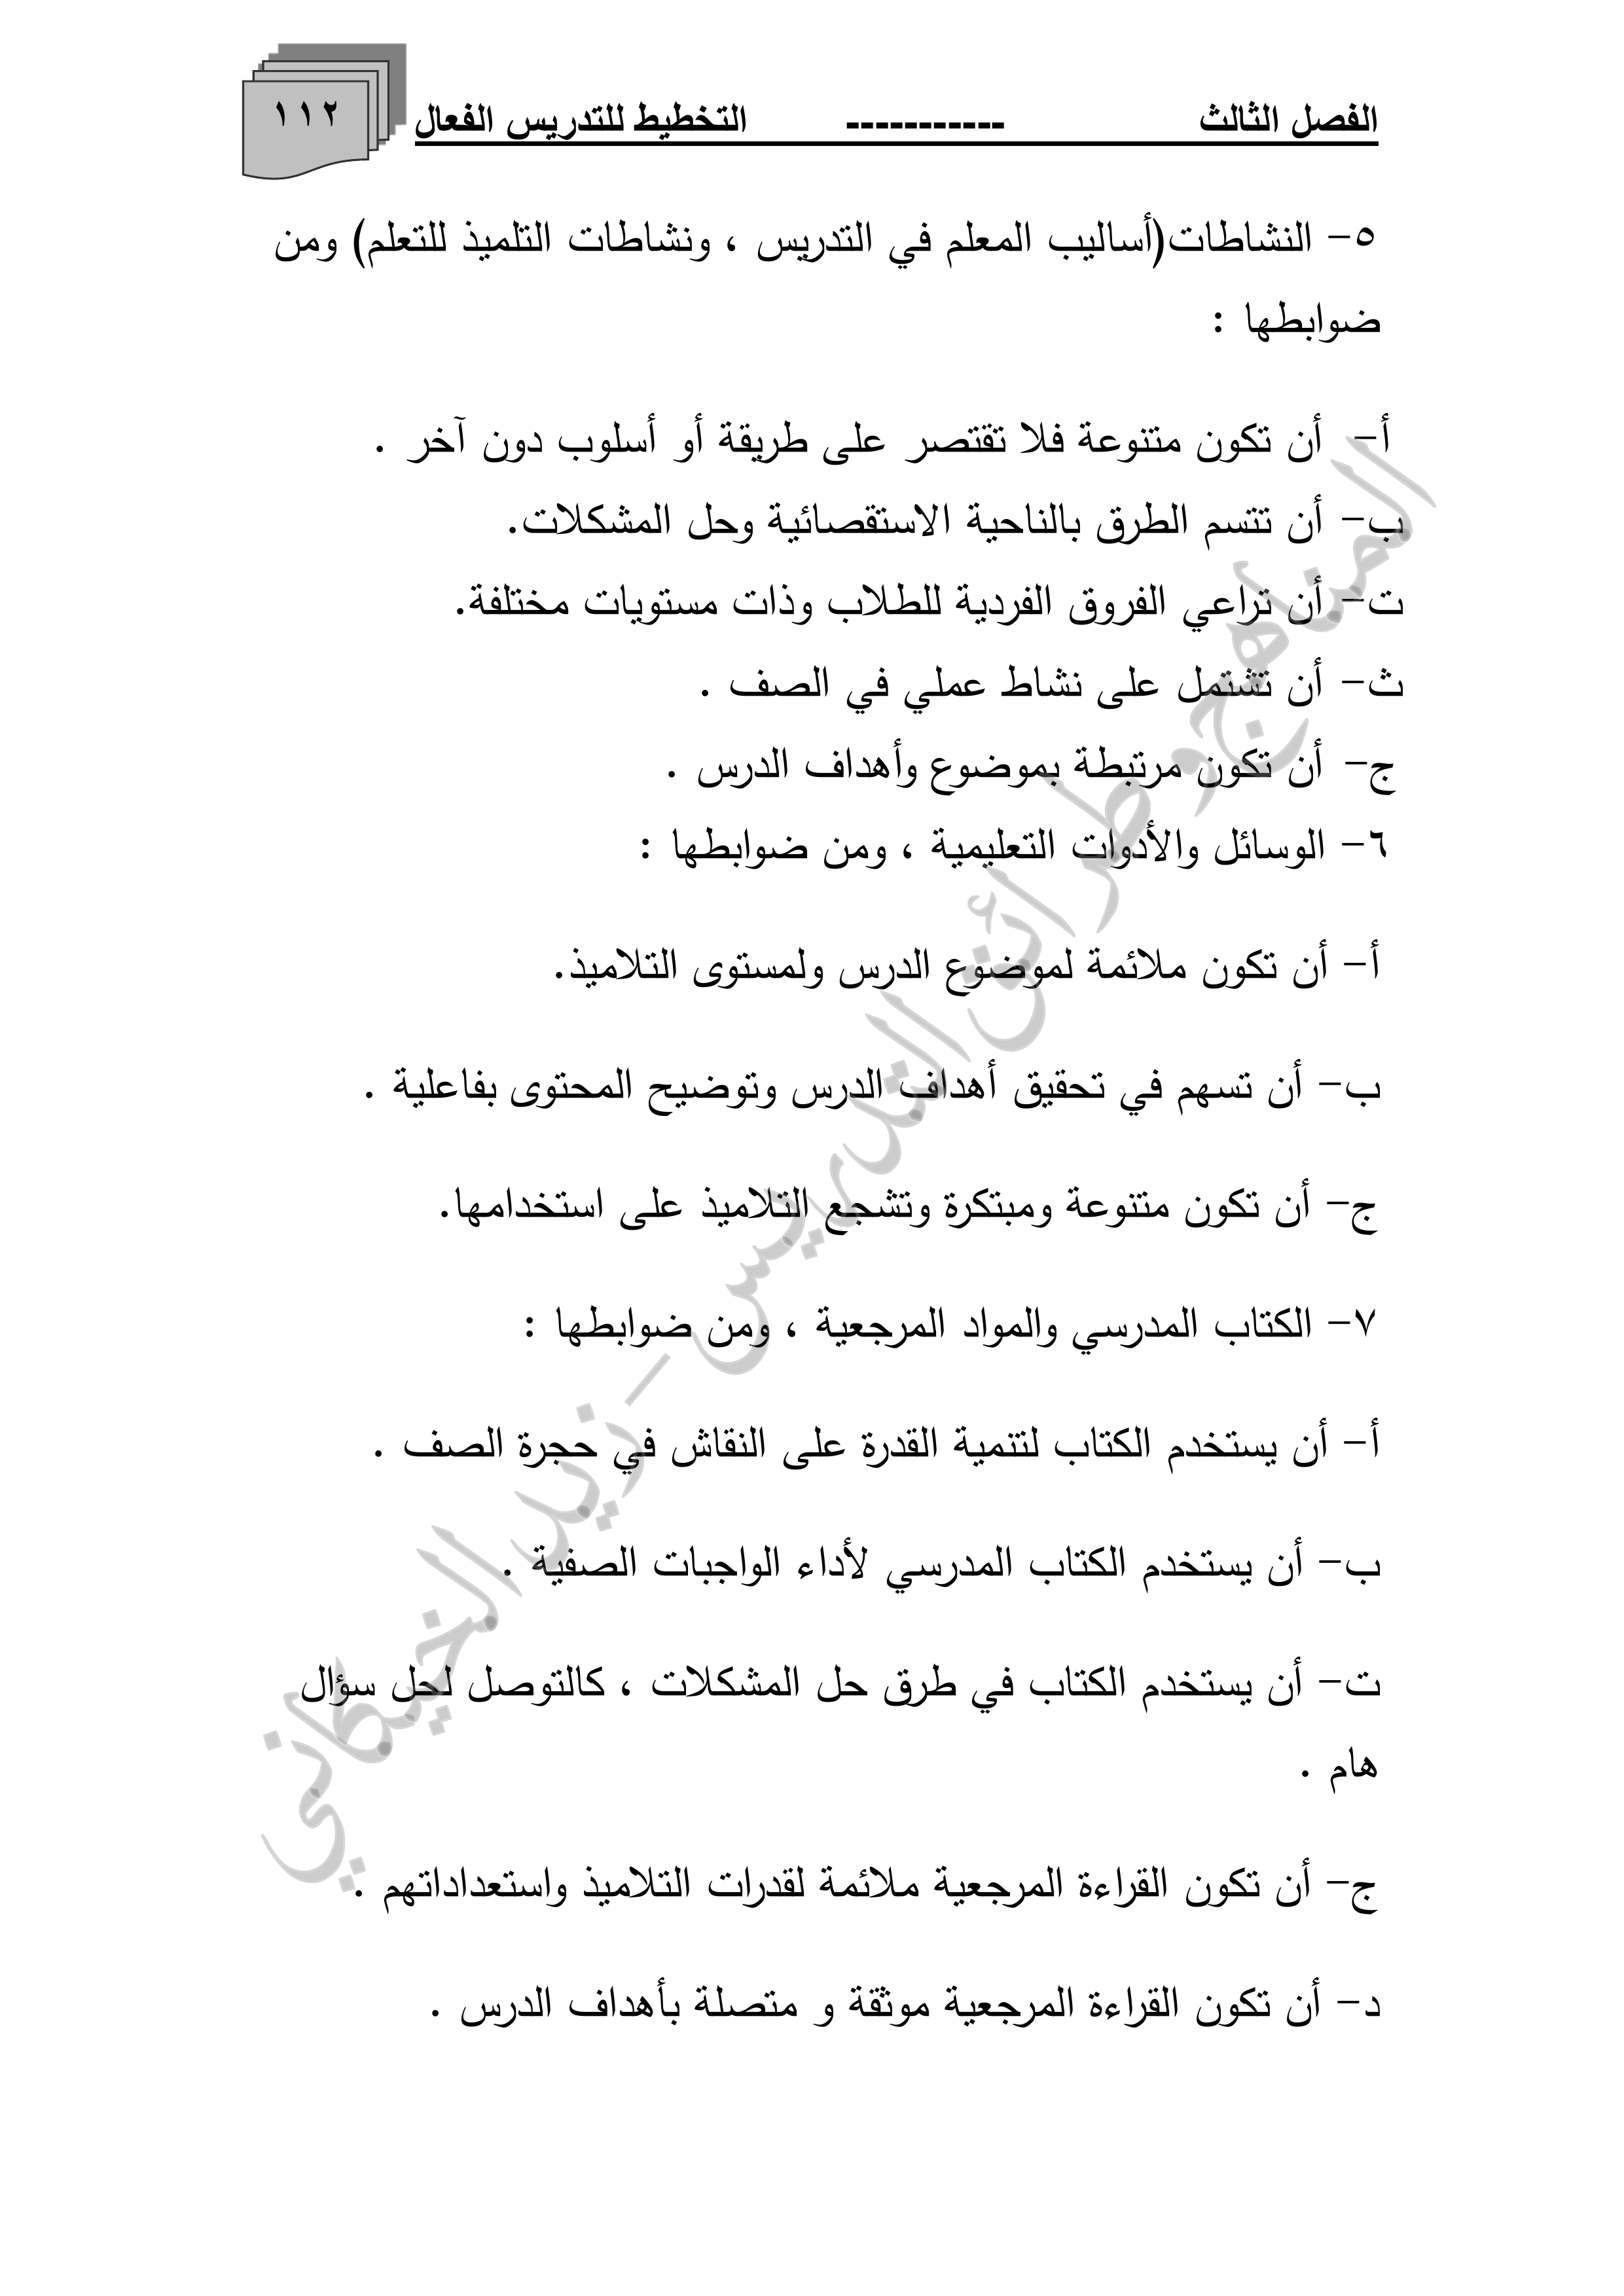 الفصل الثالث ----------- التخطيط للتدريس الفعال ١١٢
٥- النشاطات(أساليب المعلم في التدريس ، ونشاطات التلميذ للتعلم) ومن
ضوابطها :
أ- أن تكون متنوعة فلا تقتصر على طريقة أو أسلوب دون آخر .
ب- أن تتسم الطرق بالناحية الاستقصائية وحل المشكلات.
ت- أن تراعي الفروق الفردية للطلاب وذات مستويات مختلفة.
ث- أن تشتمل على نشاط عملي في الصف .
ج- أن تكون مرتبطة بموضوع وأهداف الدرس .
٦- الوسائل والأدوات التعليمية ، ومن ضوابطها :
أ- أن تكون ملائمة لموضوع الدرس ولمستوى التلاميذ.
ب- أن تسهم في تحقيق أهداف الدرس وتوضيح المحتوى بفاعلية .
ج- أن تكون متنوعة ومبتكرة وتشجع التلاميذ على استخدامها.
٧- الكتاب المدرسي والمواد المرجعية ، ومن ضوابطها :
أ- أن يستخدم الكتاب لتنمية القدرة على النقاش في حجرة الصف .
ب- أن يستخدم الكتاب المدرسي لأداء الواجبات الصفية .
ت- أن يستخدم الكتاب في طرق حل المشكلات ، كالتوصل لحل سؤال
هام .
ج- أن تكون القراءة المرجعية ملائمة لقدرات التلاميذ واستعداداتهم .
د- أن تكون القراءة المرجعية موثقة و متصلة بأهداف الدرس .
المناهج وطرائق التدريس - زيد الخيكاني